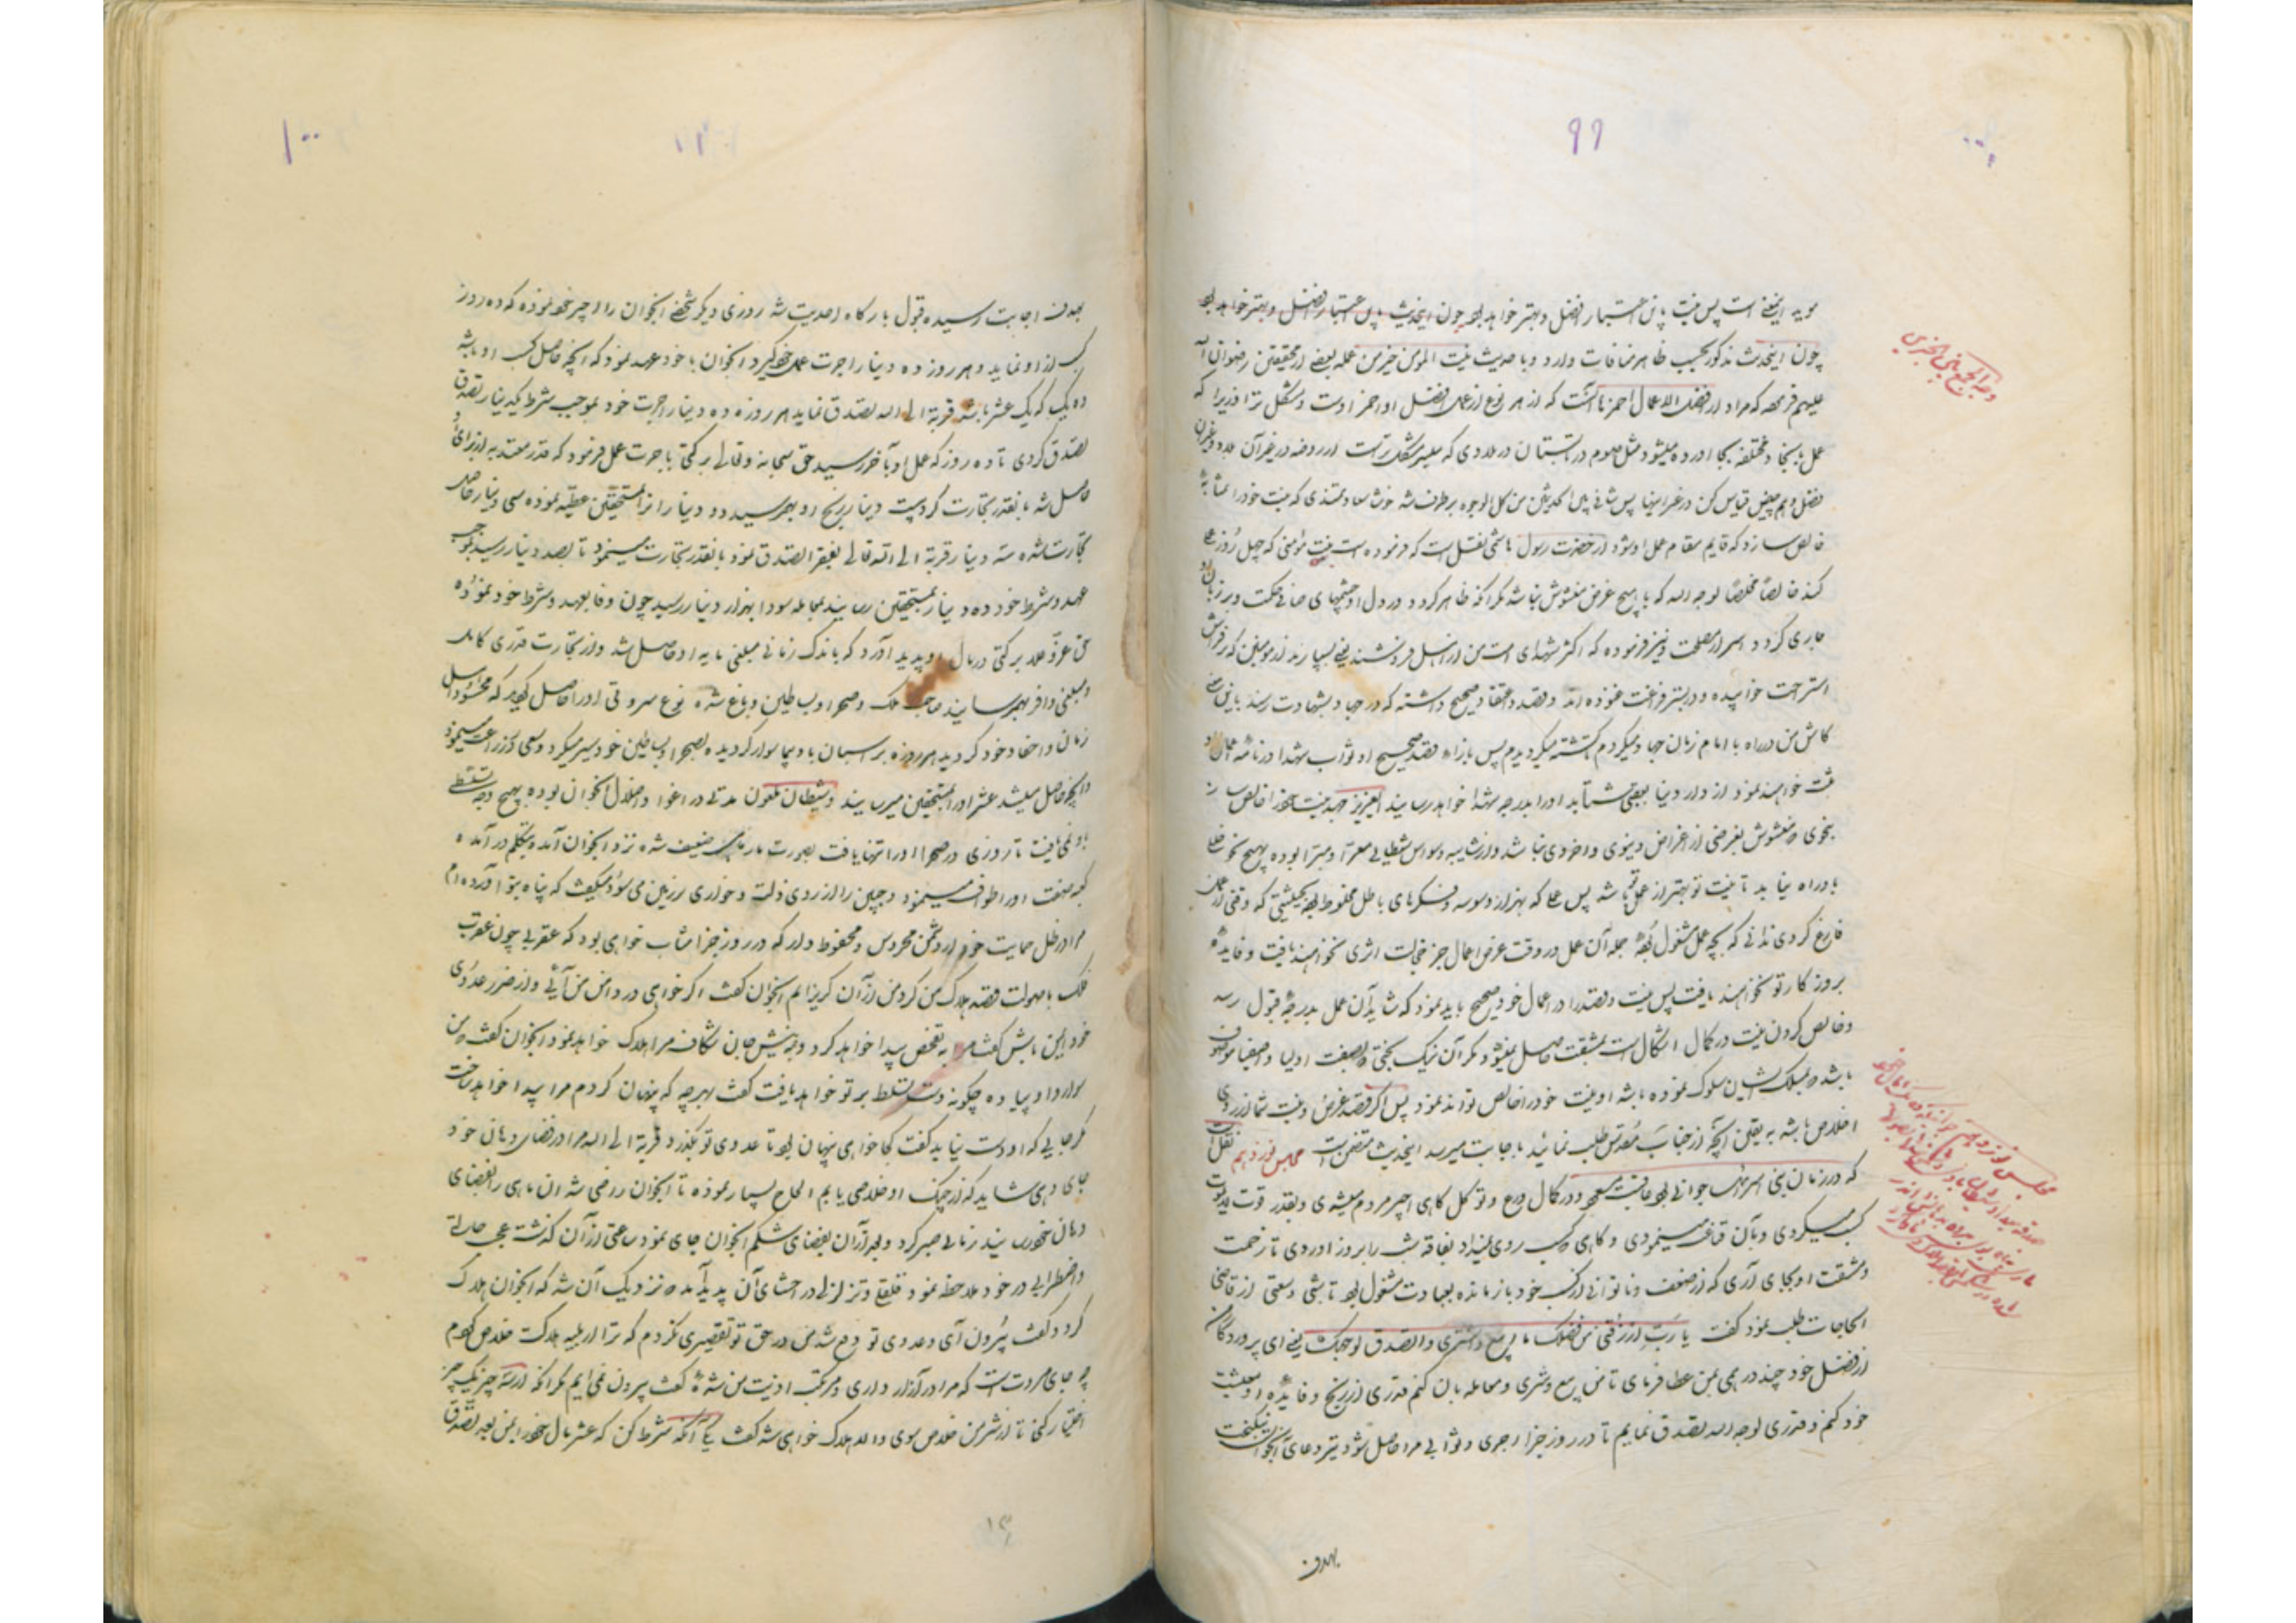 ۹۹
موید اینمعنی است پس نیت باین اعتبار افضل و بهتر خواهد بود چون اینحدیث باین اعتبار افضل و بهتر خواهد بود
چون اینحدیث مذکور بحسب ظاهر منافات دارد و با حدیث نیت المومن خیر من عمله بعضی از محققین رضوان الله
علیهم فرموده که مراد از افضل الاعمال احمزها آنست که از هر نوع از عمل افضل او احمز اوست و مشکل تر زیرا که
عمل
فضل و هم چنین قیاس کن در غیر اینها پس منافات بین الحدیثین من کل الوجوه برطرف شد خوشا سعادتمندی که نیت خود را
خالص سازد که قایم مقام عمل او شود از حضرت رسول هاشمی نقل است که فرموده است نیت مؤمنی که چهل روز عمل
کند خالصا مخلصا لوجه الله که با هیچ غرض مغشوش نباشد مگر آنکه ظاهر گردد در دل او چشمهای صافی حکمت و بر زبان او
جاری گردد اسرار مصلحت و نیز فرموده که اکثر شهدای امت من از اهل فرشند یعنی بسیارند از مومنین که بر فراش
استراحت خوابیده و در بستر فراغت غنوده اند و قصد و اعتقاد صحیح داشته که در جهاد بشهادت رسند باین معنی
کاش من در راه با امام زمان جهاد میکردم کشته میگردیدم پس بازاء قصد صحیح او ثواب شهدا در نامه اعمال او
ثبت خواهند نمود از دار دنیا بعقبی شتابد او را بدرجه شهدا خواهد رسانید ایعزیز جهد نیت خود را خالص ساز
بنحوی که مغشوش بغرضی از اغراض دنیوی و اخروی نباشد و از شایبه وسواس شیطانی معرا و مبرا بوده بهیچ نحو خللی
باو راه نیابد تا نیت تو بهتر از عمل تو باشد پس عملی که بهزار وسوسه و فکرهای باطل مخلوط بود بحیثیتی که وقتی از عمل
فارغ گردی ندانی که بچه عمل مشغول بوده جمله آن عمل در وقت عرض اعمال جز خجالت اثری نخواهند یافت و فایده
بروز کار تو نخواهند یافت پس نیت و قصد را در اعمال خود صحیح باید نمود که شاید آن عمل بدرجه قبول رسد
و خالص کردن نیت در کمال اشکال است بمشقت حاصل میشود مگر آن نیک بختی که بصفت اولیا و اصفیا موصوف
باشد و بمسلک ایشان سلوک نموده باشد او نیت خود را خالص تواند نمود پس اگر قصد و غرض و نیت شما از روی
اخلاص باشد به یقین آنچه از جناب مقدس طلب نمائید باجابت میرسد اینحدیث متضمن است مجلس نوزدهم نقل است
که در زمان بنی اسرائیل جوانی بود عاقبت محمود در کمال ورع و توکل گاهی اجیر مردم میشدی و بقدر قوت لایموت
کسب میکردی و بآن قناعت مینمودی و گاهی که کسب روی نمیداد بفاقه شب را بروز آوردی تا زحمت
و مشقت او بجای آری که از ضعف و ناتوانی از کسب خود بازمانده بعبادت مشغول بود تا شبی وسعتی از قاضی
الحاجات طلب نمود گفت یا رب ارزقنی من فضلک ما ابیع و اشتری و اتصدق لوجهک یعنی ای پروردگار من
از فضل خود چند درهمی بمن عطا فرمای تا من بیع و شری و معامله بآن کنم قدری از ربح و فایده او معیشت
خود کنم و قدری لوجه الله تصدق نمایم تا در روز جزا اجری و ثوابی مرا حاصل شود تیر دعای آنجوان نیکبخت
بهدف
وجه الجمع بین الخبرین
مجلس نوزدهم
۱۰۰
بهدف اجابت رسیده قبول بارگاه احدیت شد روزی دیگر شخصی آنجوان را اجیر خود نموده که ده روز
کسب از او نماید و هر روز ده دینار اجرت عمل خود گیرد آنجوان با خود عهد نمود که آنچه حاصل کسب او باشد
ده یک که یک عشر باشد قربة الی الله تصدق نماید هر روزه ده دینار اجرت خود بموجب شرط یکدینار تصدق
تصدق کردی تا ده روز که عمل او بآخر رسید حق سبحانه و تعالی برکتی باجرت عمل فرمود که قدر معتد به از برای او
حاصل شد بآنقدر تجارت کرد بیست دینار ربح او بهم رسید دو دینار را بمستحقین عطیه نموده سی دینار حاصل
تجارت شده سه دینار قربة الی الله تعالی بفقرا تصدق نمود بآنقدر تجارت مینمود تا بصد دینار رسید بموجب
عهد و شرط خود ده دینار بمستحقین رسانید بمعامله سودا بهزار دینار رسید چون وفا بعهد و شرط خود نموده
حق عز و علا برکتی در مال او پدید آورد که باندک زمانی مبلغی مایه او حاصل شد و از تجارت قدری کامل
و مبلغی وافر بهم رسانید صاحب ملک و صحرا و بساطین و باغ شده نوع ثروتی او را حاصل گردید که محسود اهل
زمان و احفاد خود گردید هر روزه بر اسبان بادپیما سوار گردیده بصحرا و بساطین خود سیر میکرد و سعی در زراعت مینمود
و آنچه حاصل میشد عشر او را بمستحقین میرسانید و شیطان ملعون مدتی در اغوا و اضلال آنجوان بوده بهیچ وجه تسلط
باو نمی یافت تا روزی در صحرا او را تنها یافت بصورت مار ضعیف شده نزد آنجوان آمده بتکلم درآمده
کعبه صفت او را طواف مینمود و جبین را از روی ذلت و خواری بر زمین می سود و میگفت که پناه بتو آورده ام
مرا در ظل حمایت خود از دشمن محروس و محفوظ دار که در روز جزا مثاب خواهی بود که عقربی چون عقرب
فلک با مهولت قصد هلاک من کرده من از آن گریزانم آنجوان گفت اگر خواهی در دامن من آئی و از ضرر عدوی
خود ایمن باش گفت مرا به تفحص پیدا خواهد کرد و به نیش جان شکاف مرا هلاک خواهد نمود آنجوان گفت من
سوار و او پیاده چگونه دست تسلط بر تو خواهد یافت گفت بهر چه که پنهان گردم مرا پیدا خواهد ساخت
مگر جایی که او دست نیابد گفت کجا خواهی پنهان بود تا عدوی تو بگذرد قربة الی الله مرا در فضای دهان خود
جای دهی شاید که از چنگ او خلاصی یابم الحاح بسیار نموده تا آنجوان راضی شد آن مار را بفضای
دهان خود رسانید زمانی صبر کرد و بعد از آن بفضای شکم آنجوان جای نمود ساعتی از آن گذشت عجب حالتی
و اضطرابی در خود ملاحظه نمود و قلق و تزلزلی در احشای آن پدید آمد که نزدیک آن شد که آنجوان هلاک
گردد گفت بیرون آی و عدوی تو دفع شد من در حق تو تقصیری نکردم که ترا از بلیه هلاکت خلاص کردم
چه جای مروت است که مرا در آزار داری و مرتکب اذیت من شده گفت بیرون نمی آیم مگر آنکه از سه چیز یک چیز
اختیار کنی تا از شر من خلاص شوی و الا هلاک خواهی شد گفت یکی آنکه شرط کن که عشر مال خود را بمن بعد تصدق